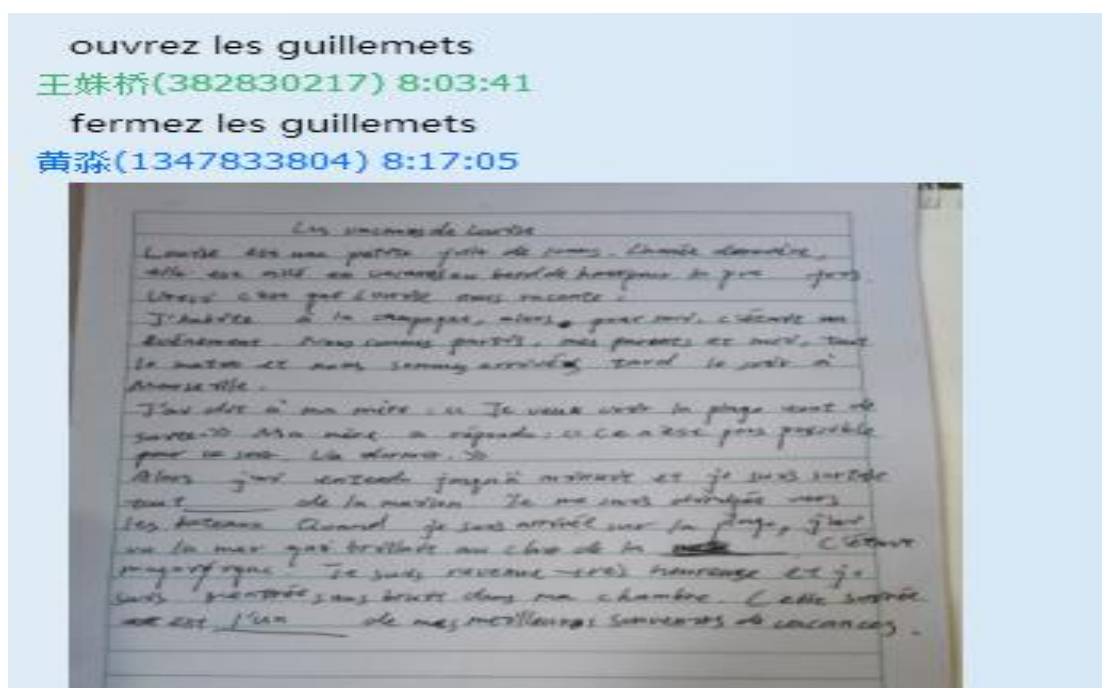 ouvrez les guillemets
王姝桥(382830217) 8:03:41
fermez les guillemets
黄淼(1347833804) 8:17:05
Les vacances de Louise
Louise est une petite de L'année dernière,
elle est en vacances au bord de
c'est que Louise raconte :
J'habite à la campagne, alors, pour moi, c'était un
événement. Nous sommes partis, mes parents et moi, tout
le matin et nous sommes arrivés tard le soir à
Marseille.
J'ai dit à ma mère : « Je veux voir la plage tout de
suite. » Ma mère a répondu : « Ce n'est pas possible
pour ce soir. Va dormir. »
Alors j'ai jusqu'à minuit et je suis sortie
tout de la maison. Je me suis dirigée vers
les bateaux. Quand je suis arrivée sur la plage, j'ai
vu la mer qui brillait au clair de la C'était
magnifique. Je suis revenue très heureuse et je
suis rentrée sans bruit dans ma chambre. Cette soirée
est l'un de mes meilleures souvenirs de vacances.